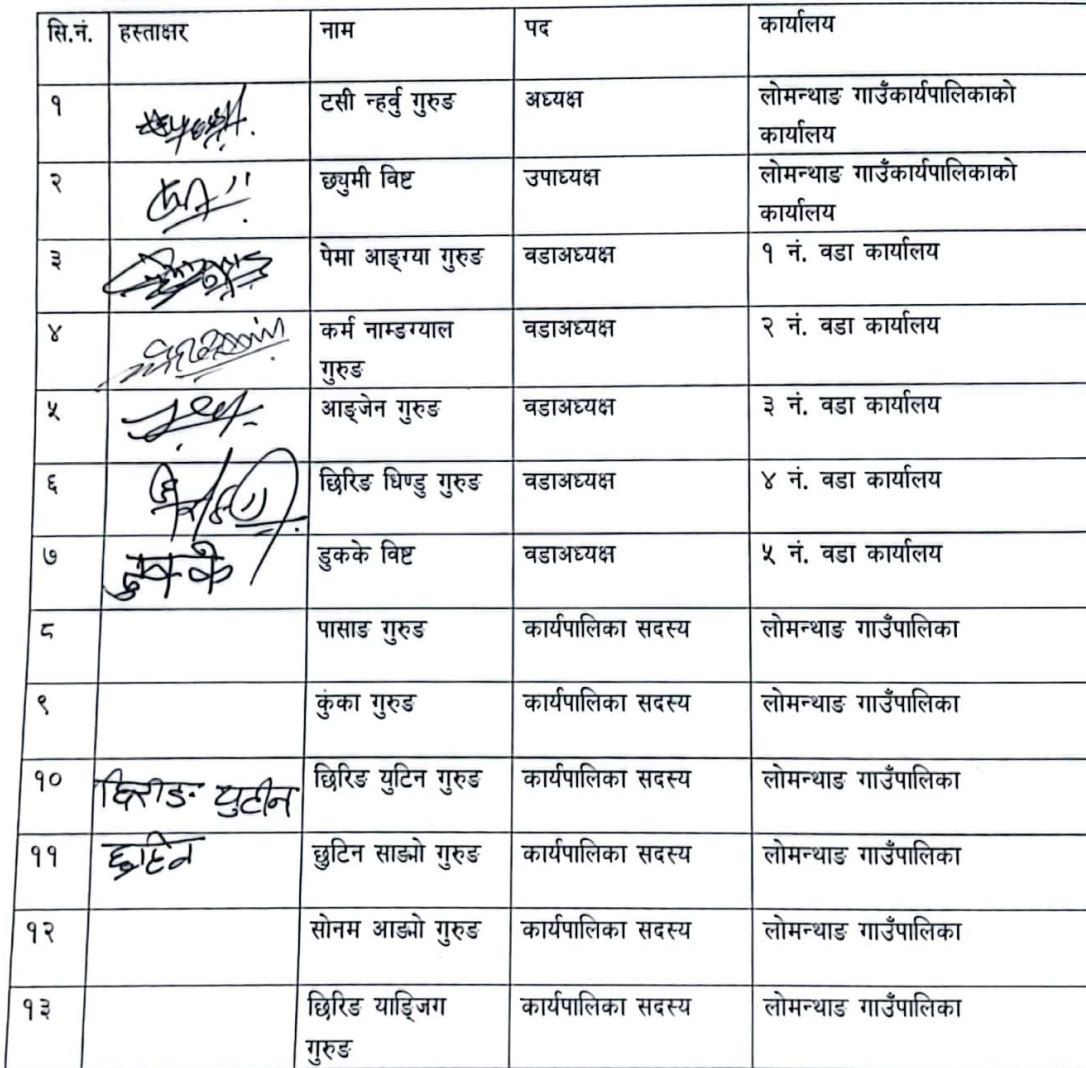 सि.नं. हस्ताक्षर नाम पद कार्यालय
१ टसी न्हर्वु गुरुङ अध्यक्ष लोमन्थाङ गाउँकार्यपालिकाको
कार्यालय
२ छ्युमी विष्ट उपाध्यक्ष लोमन्थाङ गाउँकार्यपालिकाको
कार्यालय
३ पेमा आङ्ग्या गुरुङ वडाअध्यक्ष १ नं. वडा कार्यालय
४ कर्म नाम्डग्याल वडाअध्यक्ष २ नं. वडा कार्यालय
गुरुङ
५ आङ्जेन गुरुङ वडाअध्यक्ष ३ नं. वडा कार्यालय
६ छिरिङ धिण्डु गुरुङ वडाअध्यक्ष ४ नं. वडा कार्यालय
७ डुकके डुकके विष्ट वडाअध्यक्ष ५ नं. वडा कार्यालय
८ पासाङ गुरुङ कार्यपालिका सदस्य लोमन्थाङ गाउँपालिका
९ कुंका गुरुङ कार्यपालिका सदस्य लोमन्थाङ गाउँपालिका
१० छिरीङ युटीन छिरिङ युटिन गुरुङ कार्यपालिका सदस्य लोमन्थाङ गाउँपालिका
११ छुटिन साङ्मो गुरुङ कार्यपालिका सदस्य लोमन्थाङ गाउँपालिका
१२ सोनम आङ्मो गुरुङ कार्यपालिका सदस्य लोमन्थाङ गाउँपालिका
१३ छिरिङ याङ्जिग कार्यपालिका सदस्य लोमन्थाङ गाउँपालिका
गुरुङ